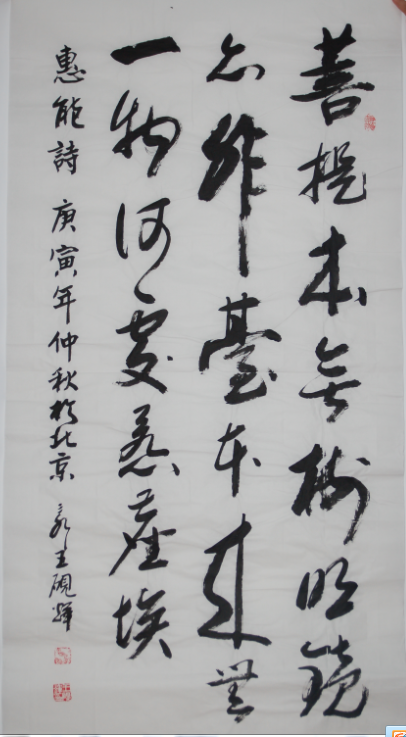 菩提本無樹明鏡
亦非臺本來無
一物何處惹塵埃
惠能詩 庚寅年仲秋於北京 王硯輝